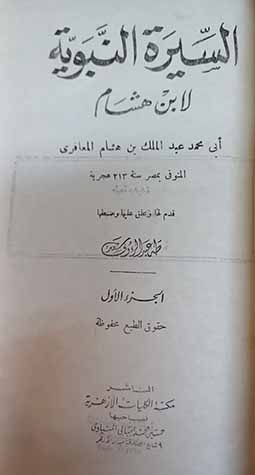 السيرة النبوية
لابن هشام
أبي محمد عبد الملك بن هشام المعافري
المتوفى بمصر سنة ٢١٣ هجرية
قدم لها وعلق عليها وضبطها
طه عبد الرؤوف سعد
الجزء الأول
حقوق الطبع محفوظة
الناشر
مكتبة الكليات الأزهرية
لصاحبها
حسين محمد إمبابى المنياوى